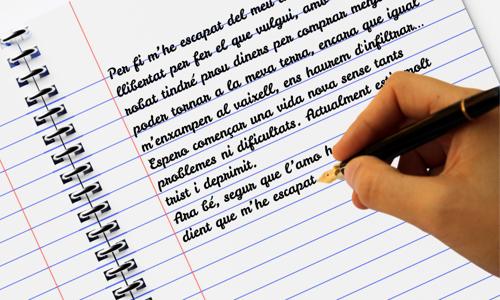 Per fi m'he escapat del meu
llibertat per fer el que vulgui, amb
robat tindré prou diners per comprar
poder tornar a la meva terra, encara que igual
m'enxampen al vaixell, ens haurem d'infiltrar...
Espero començar una vida nova sense tants
problemes ni dificultats. Actualment molt
trist i deprimit.
Ara bé, segur que l'amo
dient que m'he escapat